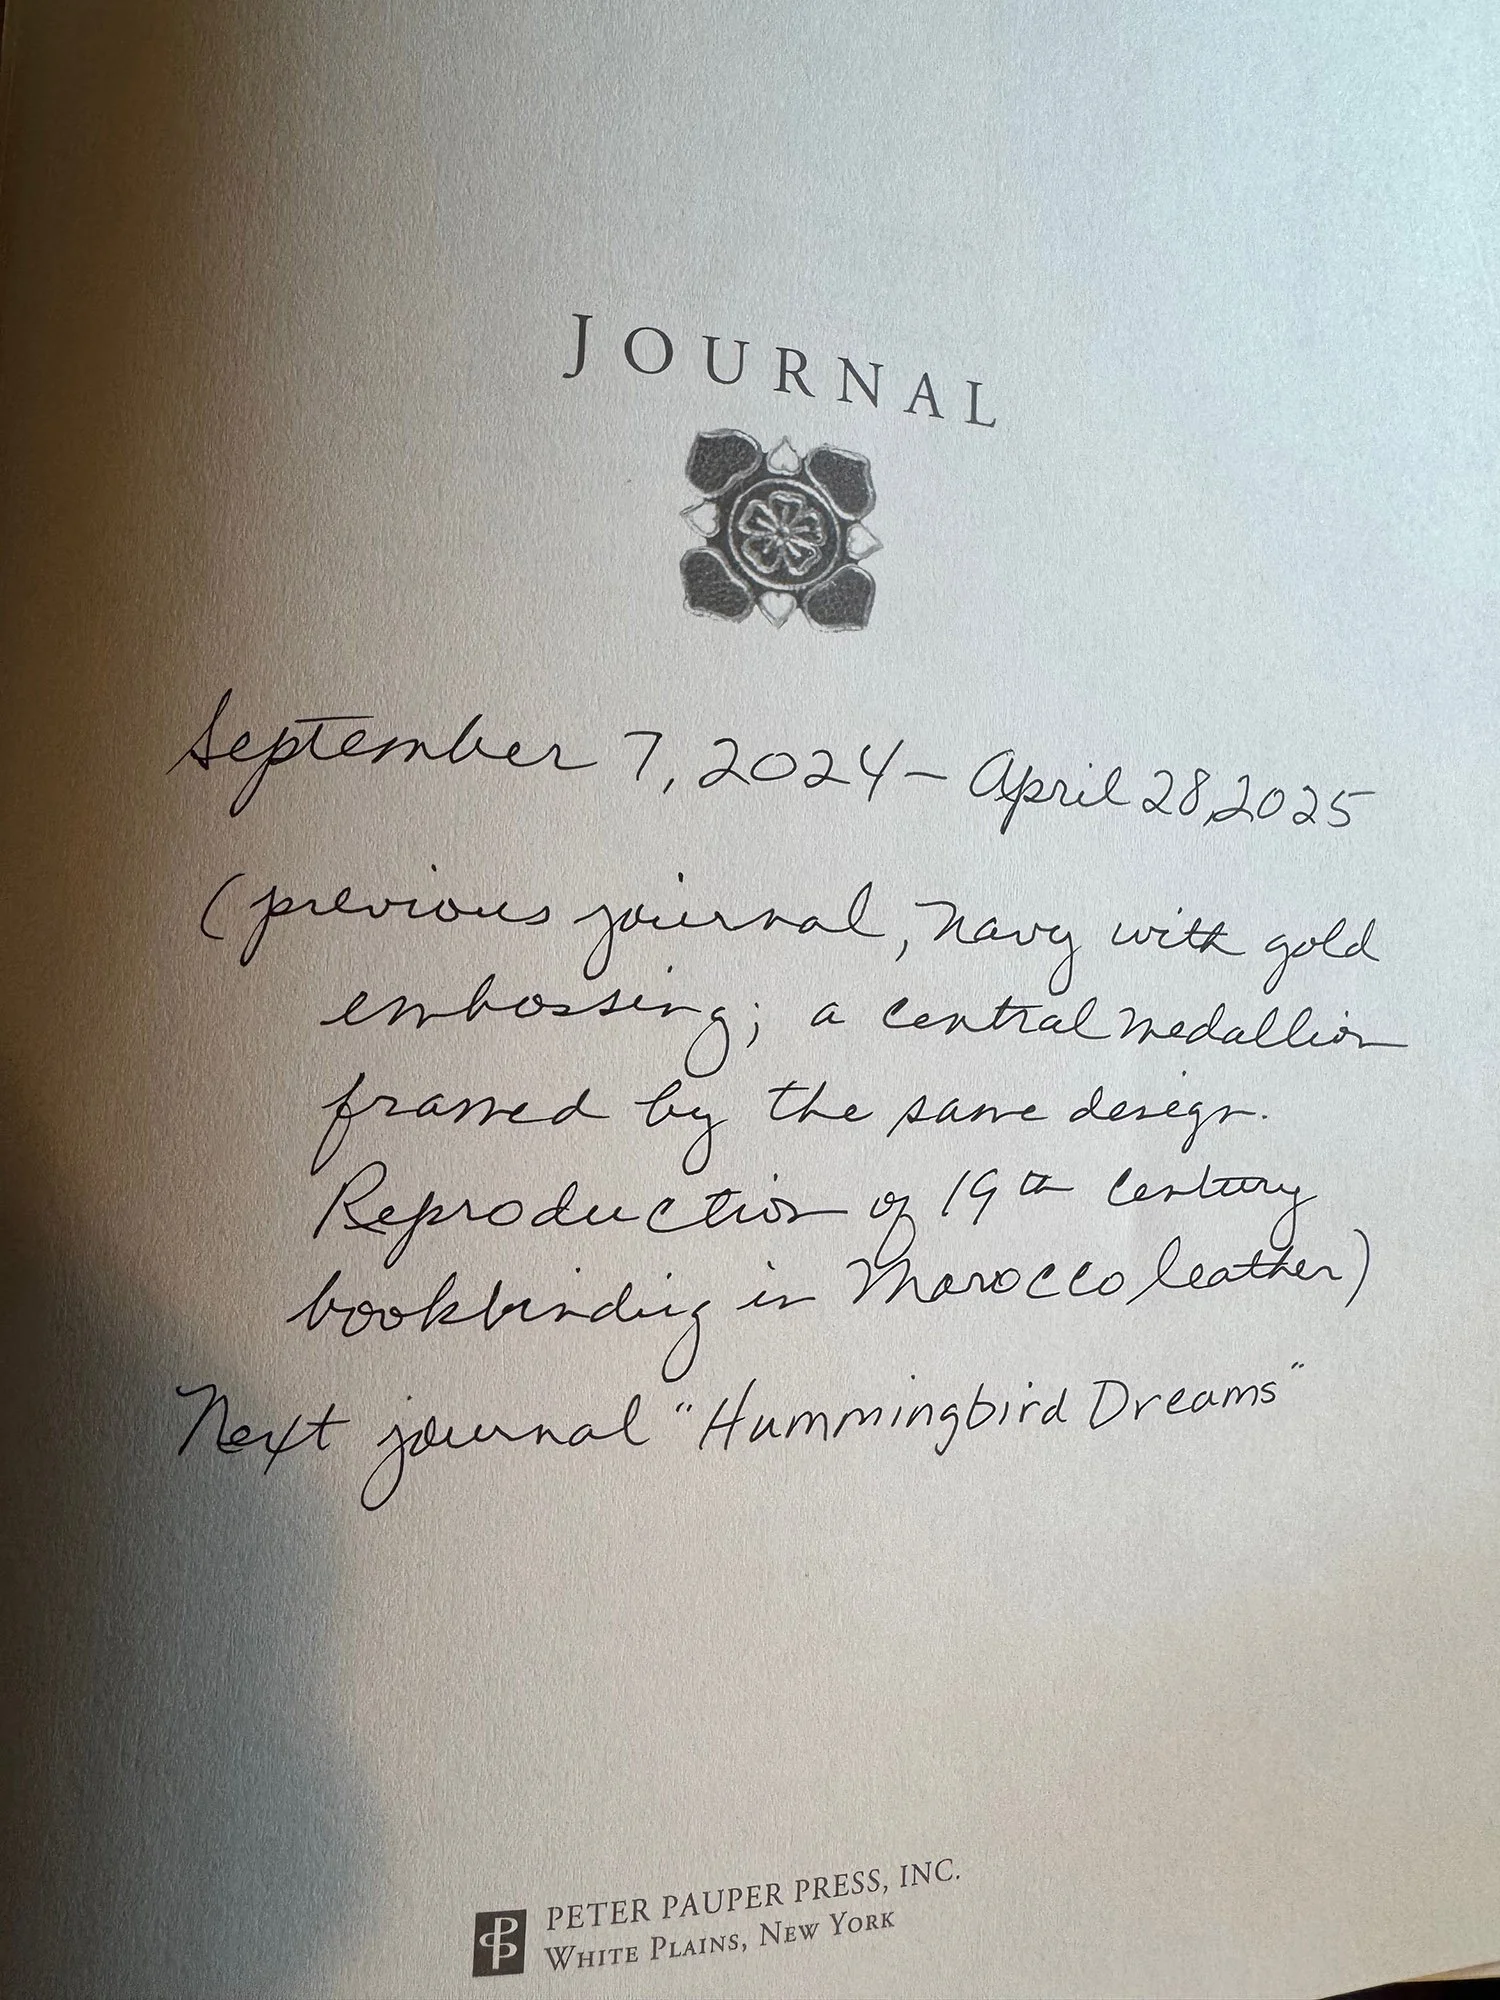 JOURNAL
September 7, 2024 – April 28, 2025
(previous journal, navy with gold
embossing; a central medallion
framed by the same design.
Reproduction of 19th century
bookbinding in Morocco leather)
Next journal "Hummingbird Dreams"
PETER PAUPER PRESS, INC.
WHITE PLAINS, NEW YORK